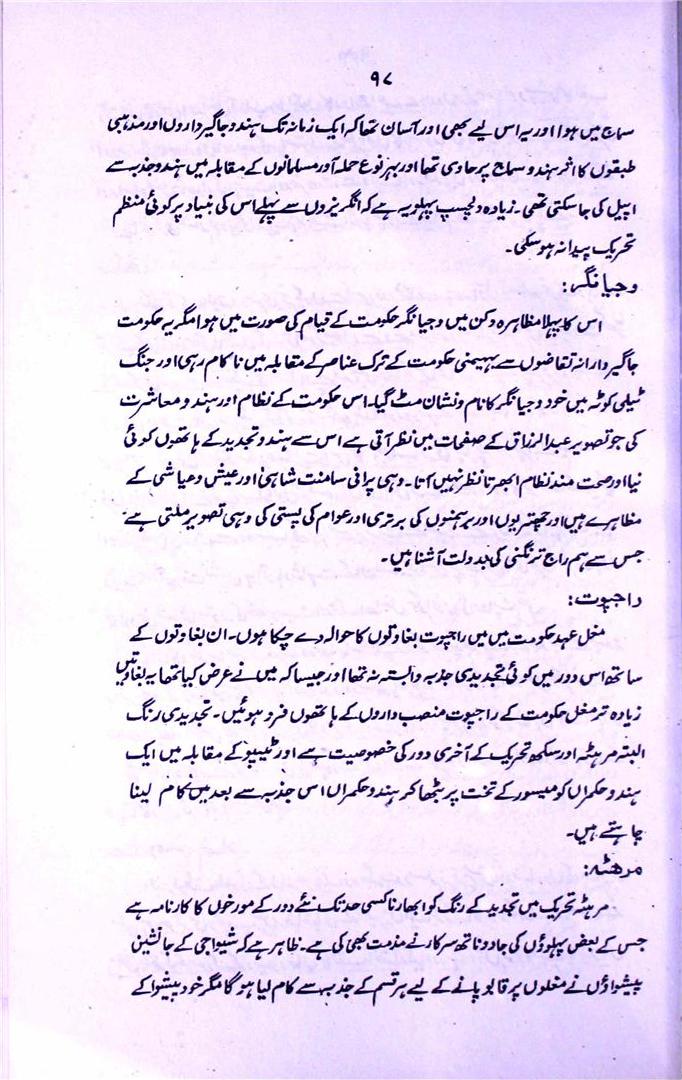 ۹۸
سماج میں ہوا اور یہ اس لیے بھی اور آسان تھا کہ ایک زمانہ تک ہندو جاگیرداروں اور مذہبی
طبقوں کا اثر ہندو سماج پر حاوی تھا اور بہر نوع حملہ آور مسلمانوں کے مقابلہ میں ہندو جذبہ سے
اپیل کی جا سکتی تھی۔ زیادہ دلچسپ پہلو یہ ہے کہ انگریزوں سے پہلے اس کی بنیاد پر کوئی منظم
تحریک پیدا نہ ہو سکی۔
وجیا نگر:
اس کا پہلا مظاہرہ دکن میں وجیا نگر حکومت کے قیام کی صورت میں ہوا مگر یہ حکومت
جاگیردارانہ تقاضوں سے بہمنی حکومت کے ترک عناصر کے مقابلہ میں ناکام رہی اور جنگ
ٹیلی کوٹہ میں خود وجیا نگر کا نام و نشان مٹ گیا۔ اس حکومت کے نظام اور ہندو معاشرت
کی جو تصویر عبدالرزاق کے صفحات میں نظر آتی ہے اس سے ہندو تجدید کے ہاتھوں کوئی
نیا اور صحت مند نظام ابھرتا نظر نہیں آتا۔ وہی پرانی سامنت شاہی اور عیش و عیاشی کے
مظاہرے ہیں اور چھتریوں اور برہمنوں کی برتری اور عوام کی پستی کی وہی تصویر ملتی ہے
جس سے ہم راج ترنگنی کی بدولت آشنا ہیں۔
راجپوت:
مغل عہد حکومت میں میں راجپوت بغاوتوں کا حوالہ دے چکا ہوں۔ ان بغاوتوں کے
ساتھ اس دور میں کوئی تجدیدی جذبہ وابستہ نہ تھا اور جیسا کہ میں نے عرض کیا تھا یہ بغاوتیں
زیادہ تر مغل حکومت کے راجپوت منصب داروں کے ہاتھوں فرو ہوئیں۔ تجدیدی رنگ
البتہ مرہٹہ اور سکھ تحریک کے آخری دور کی خصوصیت ہے اور ٹیپو کے مقابلہ میں ایک
ہندو حکمراں کو میسور کے تخت پر بٹھا کر ہندو حکمراں اس جذبہ سے بعد میں کام لینا
چاہتے ہیں۔
مرھٹہ:
مرہٹہ تحریک میں تجدید کے رنگ کو ابھارنا کسی حد تک نئے دور کے مورخوں کا کارنامہ ہے
جس کے بعض پہلوؤں کی جادوناتھ سرکار نے مذمت بھی کی ہے۔ ظاہر ہے کہ شیواجی کے جانشین
پیشواؤں نے مغلوں پر قابو پانے کے لیے ہر قسم کے جذبہ سے کام لیا ہوگا مگر خود پیشوا کے